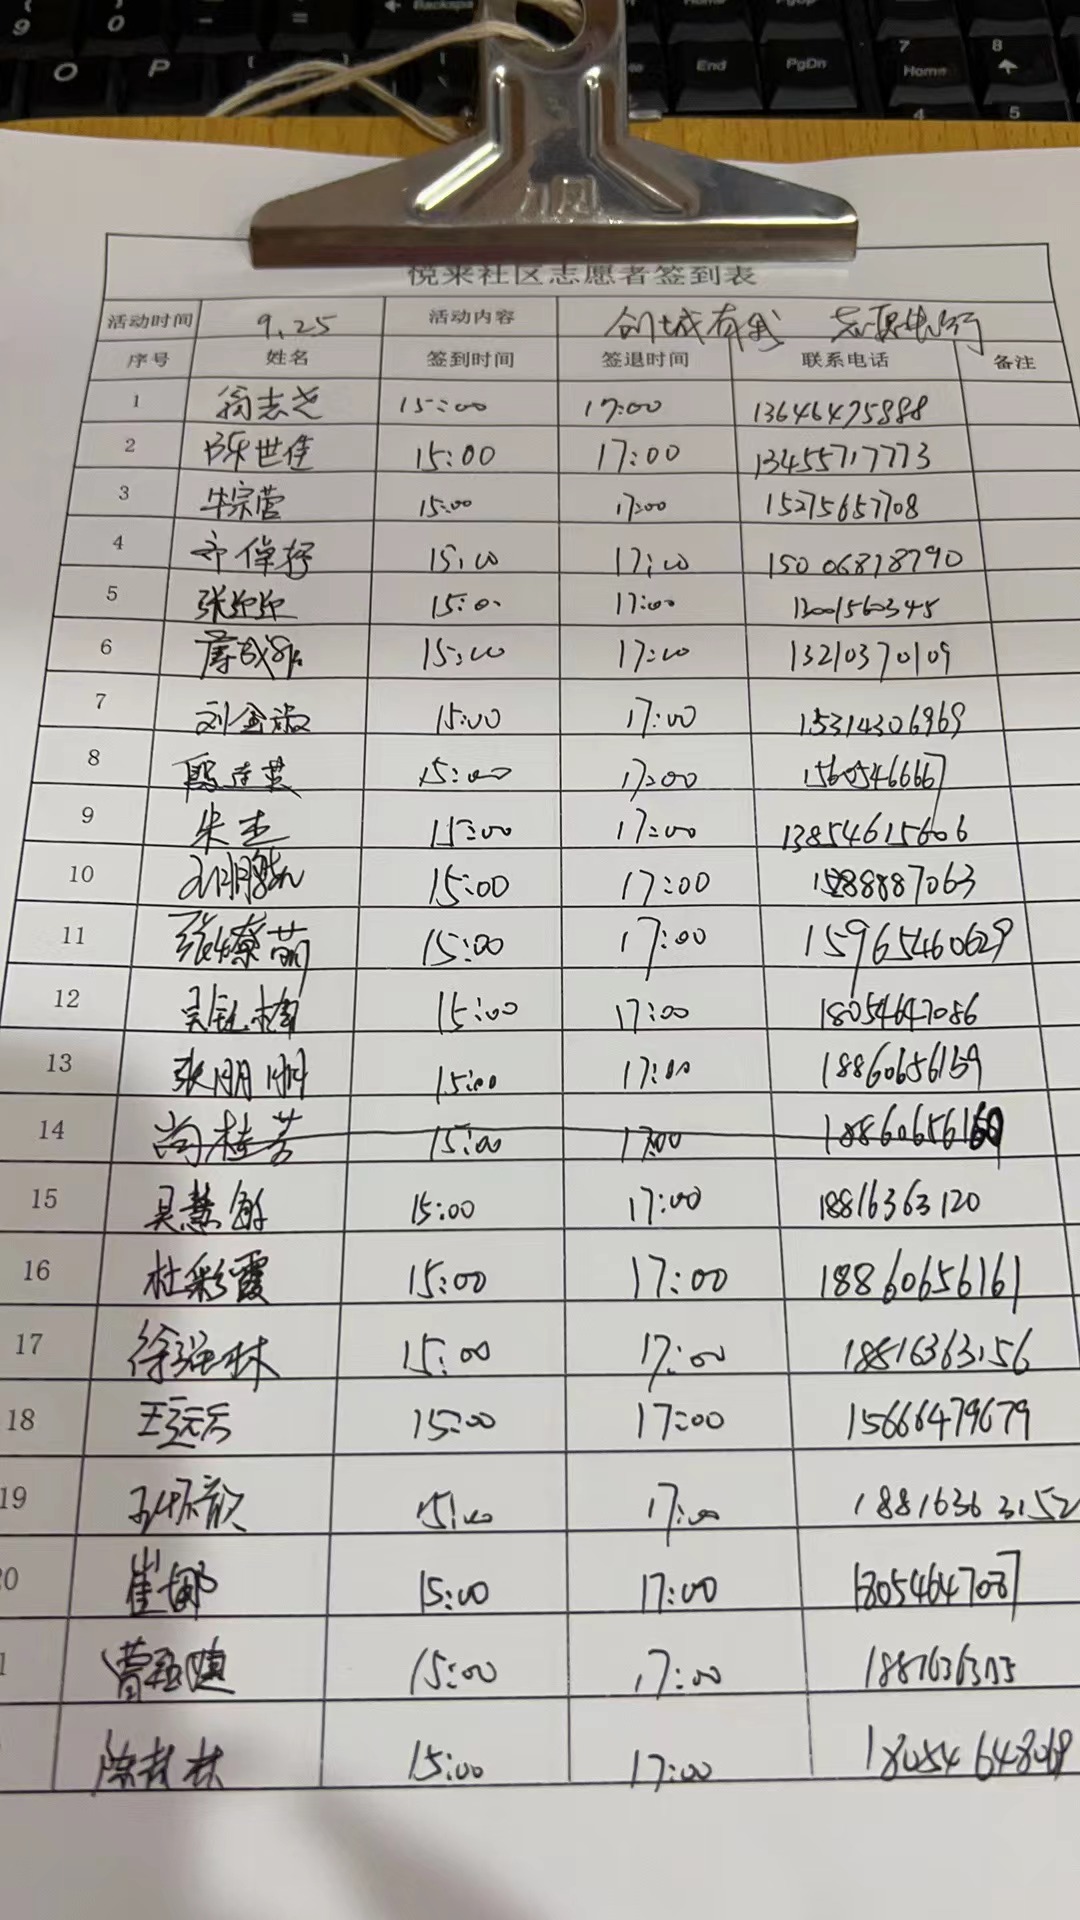 9 0 Backspa Home PgUp
O P [ End PgDn 7 Home 8
4 5
悦来社区志愿者签到表
活动时间 9.25 活动内容 创城有我 志愿先行
序号 姓名 签到时间 签退时间 联系电话 备注
1 15:00 17:00 13646475888
2 陈世佳 15:00 17:00 13455717773
3 牛宗营 15:00 17:00 15275657708
4 15:00 17:00 15006878790
5 张迎迎 15:00 17:00 13001560345
6 15:00 17:00 13210370109
7 刘金淑 15:00 17:00 15314306969
8 15:00 17:00 15605466667
9 朱杰 15:00 17:00 13854615606
10 15:00 17:00
11 张燎萌 15:00 17:00 15965460629
12 15:00 17:00 18054647086
13 张朋朋 15:00 17:00 18860656159
14 尚桂芳 15:00 17:00 18860656160
15 吴慧敏 15:00 17:00 18816363120
16 杜彩霞 15:00 17:00 18860656161
17 徐强林 15:00 17:00 18816363156
18 15:00 17:00 15666479679
19 15:00 17:00 18816363152
20 崔娜 15:00 17:00 18054647087
1 15:00 17:00
15:00 17:00 18054648069